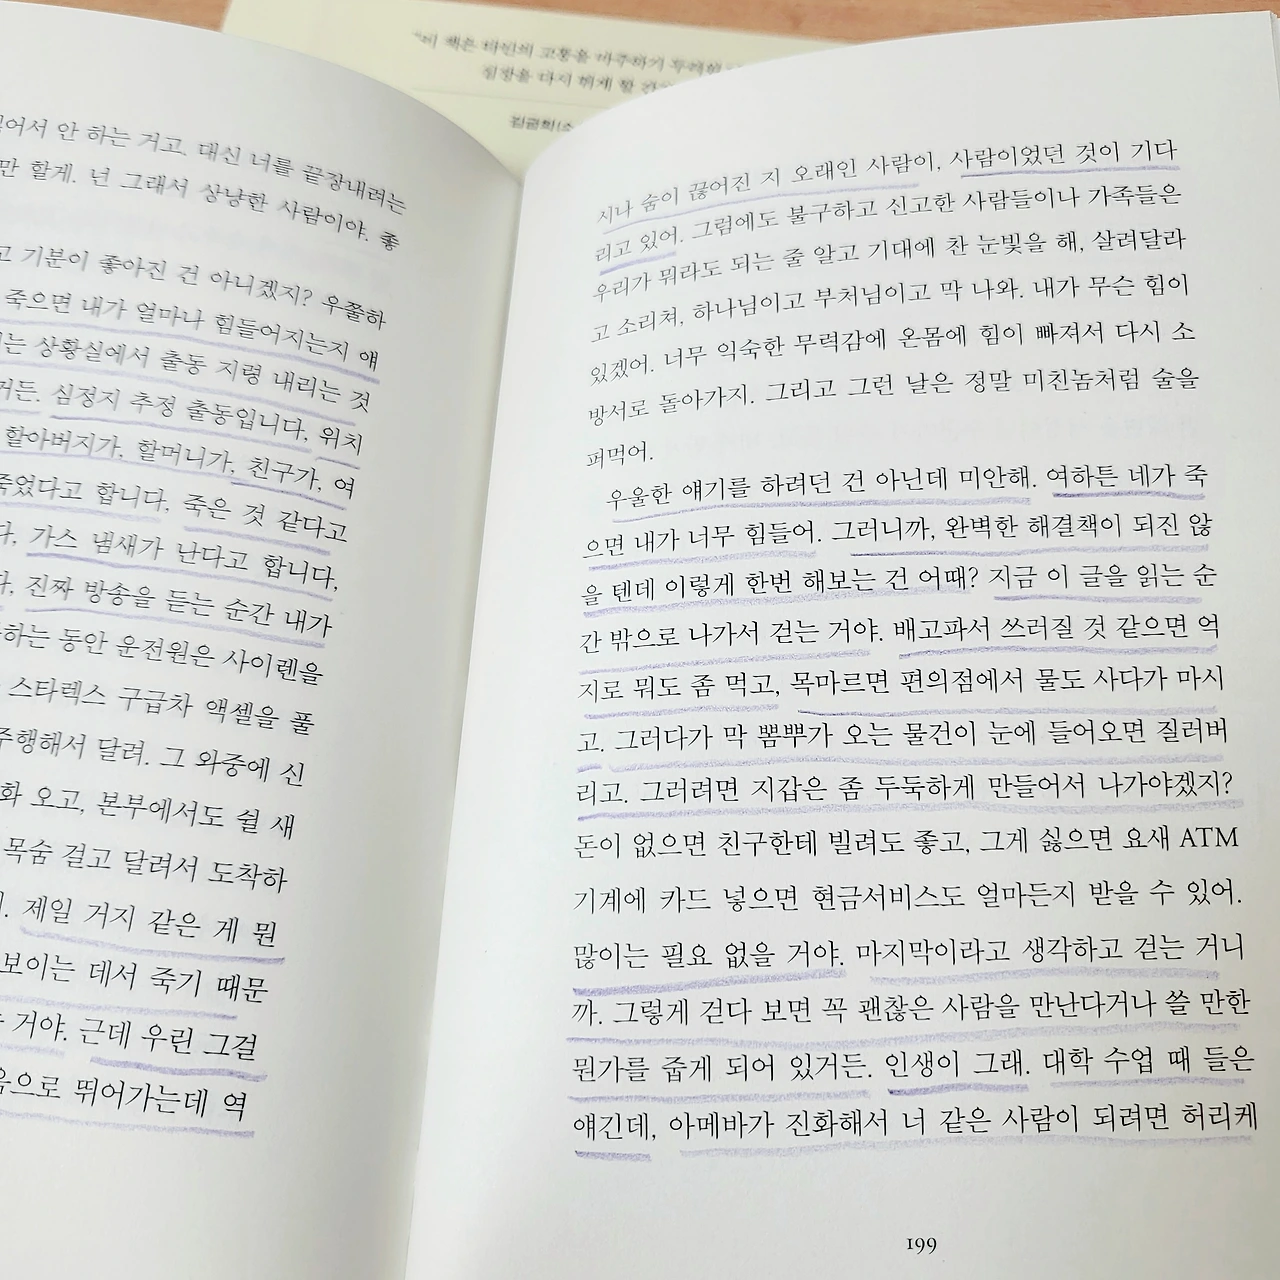 "이 책은 타인의 고통을 마주하기 두려워
심장을 다시 뛰게 할
김금희(소
어서 안 하는 거고. 대신 너를 끝장내려는
만 할게. 넌 그래서 상냥한 사람이야. 좋
고 기분이 좋아진 건 아니겠지? 우쭐하
죽으면 내가 얼마나 힘들어지는지 얘
는 상황실에서 출동 지령 내리는 것
거든. 심정지 추정 출동입니다, 위치
할아버지가, 할머니가, 친구가, 여
죽었다고 합니다, 죽은 것 같다고
다, 가스 냄새가 난다고 합니다,
다. 진짜 방송을 듣는 순간 내가
하는 동안 운전원은 사이렌을
스타렉스 구급차 액셀을 풀
주행해서 달려. 그 와중에 신
화 오고, 본부에서도 쉴 새
목숨 걸고 달려서 도착하
제일 거지 같은 게 뭔
보이는 데서 죽기 때문
거야. 근데 우린 그걸
음으로 뛰어가는데 역
시나 숨이 끊어진 지 오래인 사람이, 사람이었던 것이 기다
리고 있어. 그럼에도 불구하고 신고한 사람들이나 가족들은
우리가 뭐라도 되는 줄 알고 기대에 찬 눈빛을 해, 살려달라
고 소리쳐, 하나님이고 부처님이고 막 나와. 내가 무슨 힘이
있겠어. 너무 익숙한 무력감에 온몸에 힘이 빠져서 다시 소
방서로 돌아가지. 그리고 그런 날은 정말 미친놈처럼 술을
퍼먹어.
우울한 얘기를 하려던 건 아닌데 미안해. 여하튼 네가 죽
으면 내가 너무 힘들어. 그러니까, 완벽한 해결책이 되진 않
을 텐데 이렇게 한번 해보는 건 어때? 지금 이 글을 읽는 순
간 밖으로 나가서 걷는 거야. 배고파서 쓰러질 것 같으면 억
지로 뭐도 좀 먹고, 목마르면 편의점에서 물도 사다가 마시
고. 그러다가 막 뽐뿌가 오는 물건이 눈에 들어오면 질러버
리고. 그러려면 지갑은 좀 두둑하게 만들어서 나가야겠지?
돈이 없으면 친구한테 빌려도 좋고, 그게 싫으면 요새 ATM
기계에 카드 넣으면 현금서비스도 얼마든지 받을 수 있어.
많이는 필요 없을 거야. 마지막이라고 생각하고 걷는 거니
까. 그렇게 걷다 보면 꼭 괜찮은 사람을 만난다거나 쓸 만한
뭔가를 줍게 되어 있거든. 인생이 그래. 대학 수업 때 들은
얘긴데, 아메바가 진화해서 너 같은 사람이 되려면 허리케
199